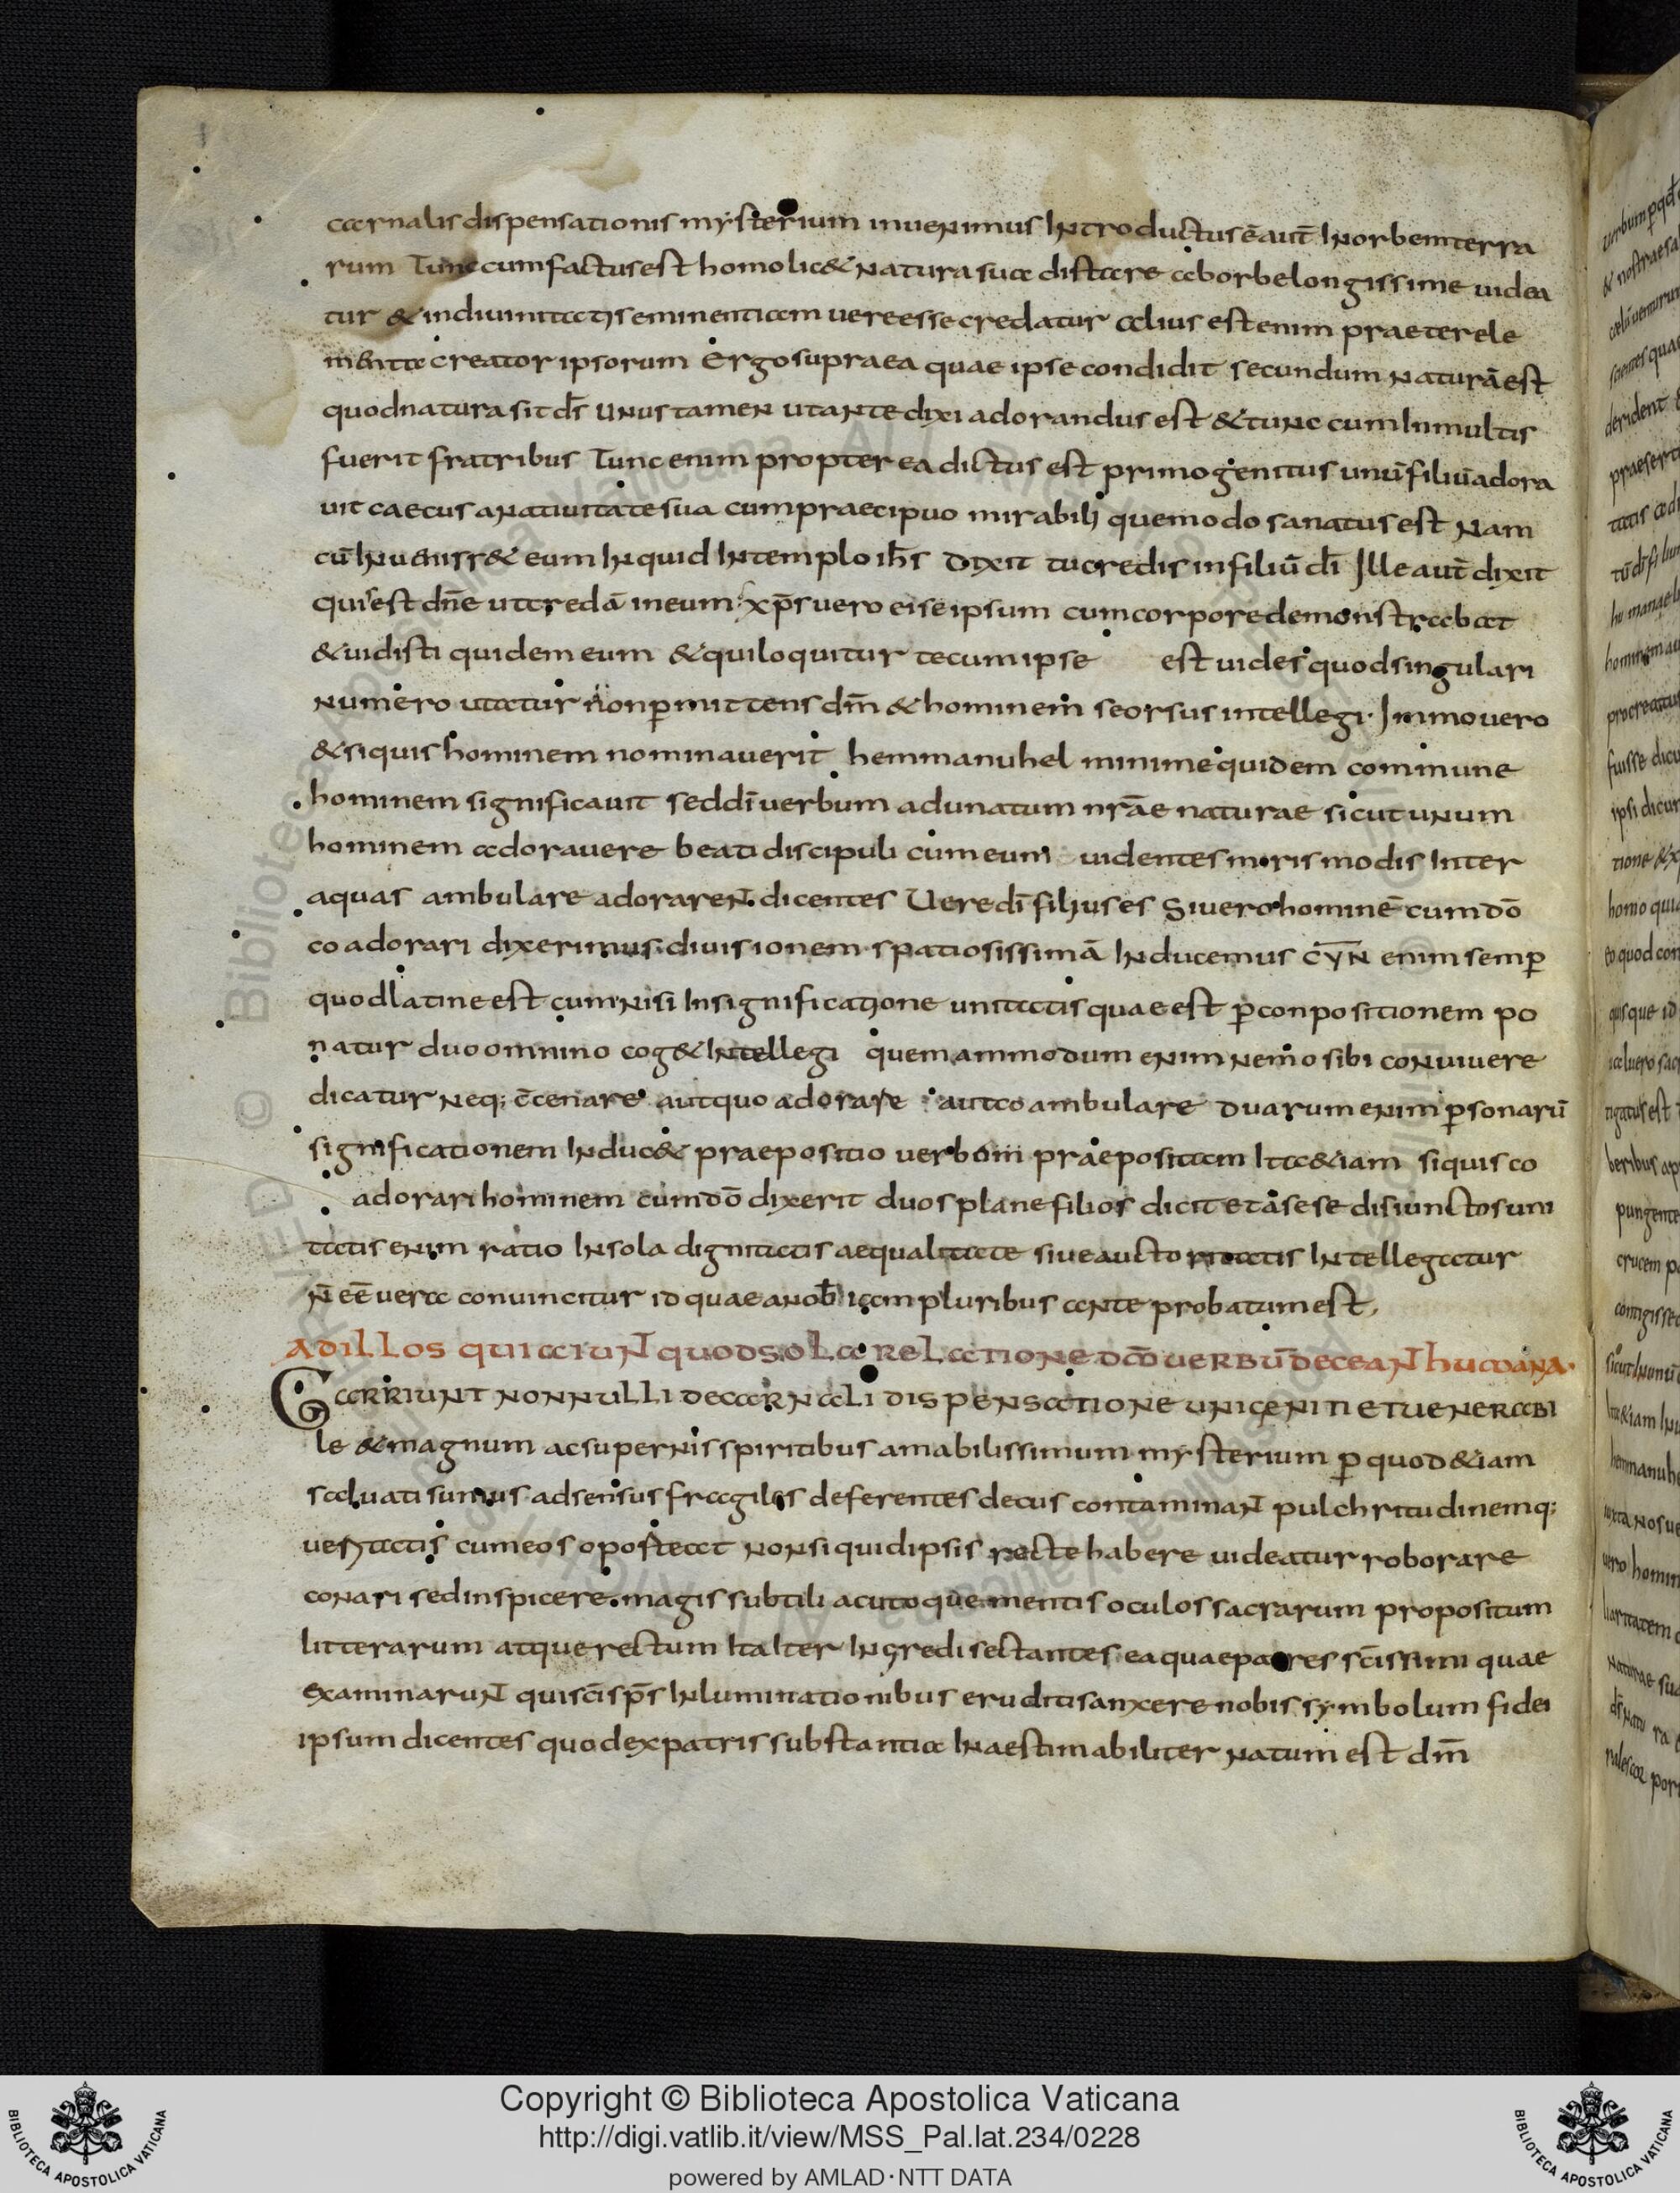 carnalis dispensationis mysterium inuenimus Introductus ē aut̄ In orbem terra
rum Tunc cum factus est homo lic& natura sua distare ab orbe longissime uidea
tur & in diuinitatis eminentiam uere esse credatur alius est enim praeter ele
menta creator ipsorum Ergo supra ea quae ipse condidit secundum naturā est
quod natura sit d̄s unus tamen ut ante dixi adorandus est & tunc cum In multis
fuerit fratribus Tunc enim propterea dictus est primogenitus unū filiū adora
uit caecus a natiuitate sua cum praecipuo mirabili quemodo sanatus est Nam
cū Inuenisset eum Inquid In templo ih̄s dixit tu credis in filiū d̄i Ille aut̄ dixit
quis est dn̄e ut credā in eum xp̄s uero ei se ipsum cum corpore demonstrabat
& uidisti quidem eum & qui loquitur tecum ipse est uides quod singulari
numero utatur non p̄mittens dm̄ & hominem seorsus intellegi · Immo uero
& siquis hominem nominauerit hemmanuhel minime quidem commune
hominem significauit sed d̄i uerbum adunatum nrāe naturae sicut unum
hominem adorauere beati discipuli cum eum uidentes miris modis Inter
aquas ambulare adorareN̄ dicentes Uere d̄i filius es Si uero hominē cum dō
co adorari dixerimus diuisionem spatiosissimā Inducemus C̄ῩN̄ enim semp̄
quod latine est cum nisi In significatione unitatis quae est p̄ conpositionem po
natur duo omnino cog& Intellegi quemammodum enim nemo sibi conuiuere
dicatur neq; c̄cenare aut quo adorare aut co ambulare duarum enim p̄sonarū
significationem Induc& praepositio uerbom praepositam Ita &iam siquis co
adorari hominem cum dō dixerit duos plane filios dicit et a se se disiunctos uni
tatis enim ratio In sola dignitatis aequalitate siue auctoritatis Intellegatur
N̄ eē uera conuincitur id quae a nob̄ iam pluribus ante probatum est,
Ad illos qui aiuN̄ quod sola relatione dō̄ uerbū deceaN̄ humana
Garriunt nonnulli de carnali dispensatione unigeniti et uenerabi
le & magnum ac supernis spiritibus amabilissimum mysterium p̄ quod &iam
saluati sumus ad sensus fragiles deferentes decus contaminaN̄ pulchritudinemq;
ueritatis cum eos oporteat non si quid ipsis recte habere uideatur roborare
conari sed inspicere magis subtili acutoque mentis oculos sacrarum propositum
litterarum atque rectum Ita Iter Ingredi sectantes ea quae patres sc̄issimi quae
examinaruN̄ qui sc̄i sp̄s Inluminationibus eruditi sanxere nobis symbolum fidei
ipsum dicentes quod ex patris substantia Inaestimabiliter natum est dm̄
Copyright © Biblioteca Apostolica Vaticana
http://digi.vatlib.it/view/MSS_Pal.lat.234/0228
powered by AMLAD·NTT DATA
BIBLIOTECA APOSTOLICA VATICANA
BIBLIOTECA APOSTOLICA VATICANA